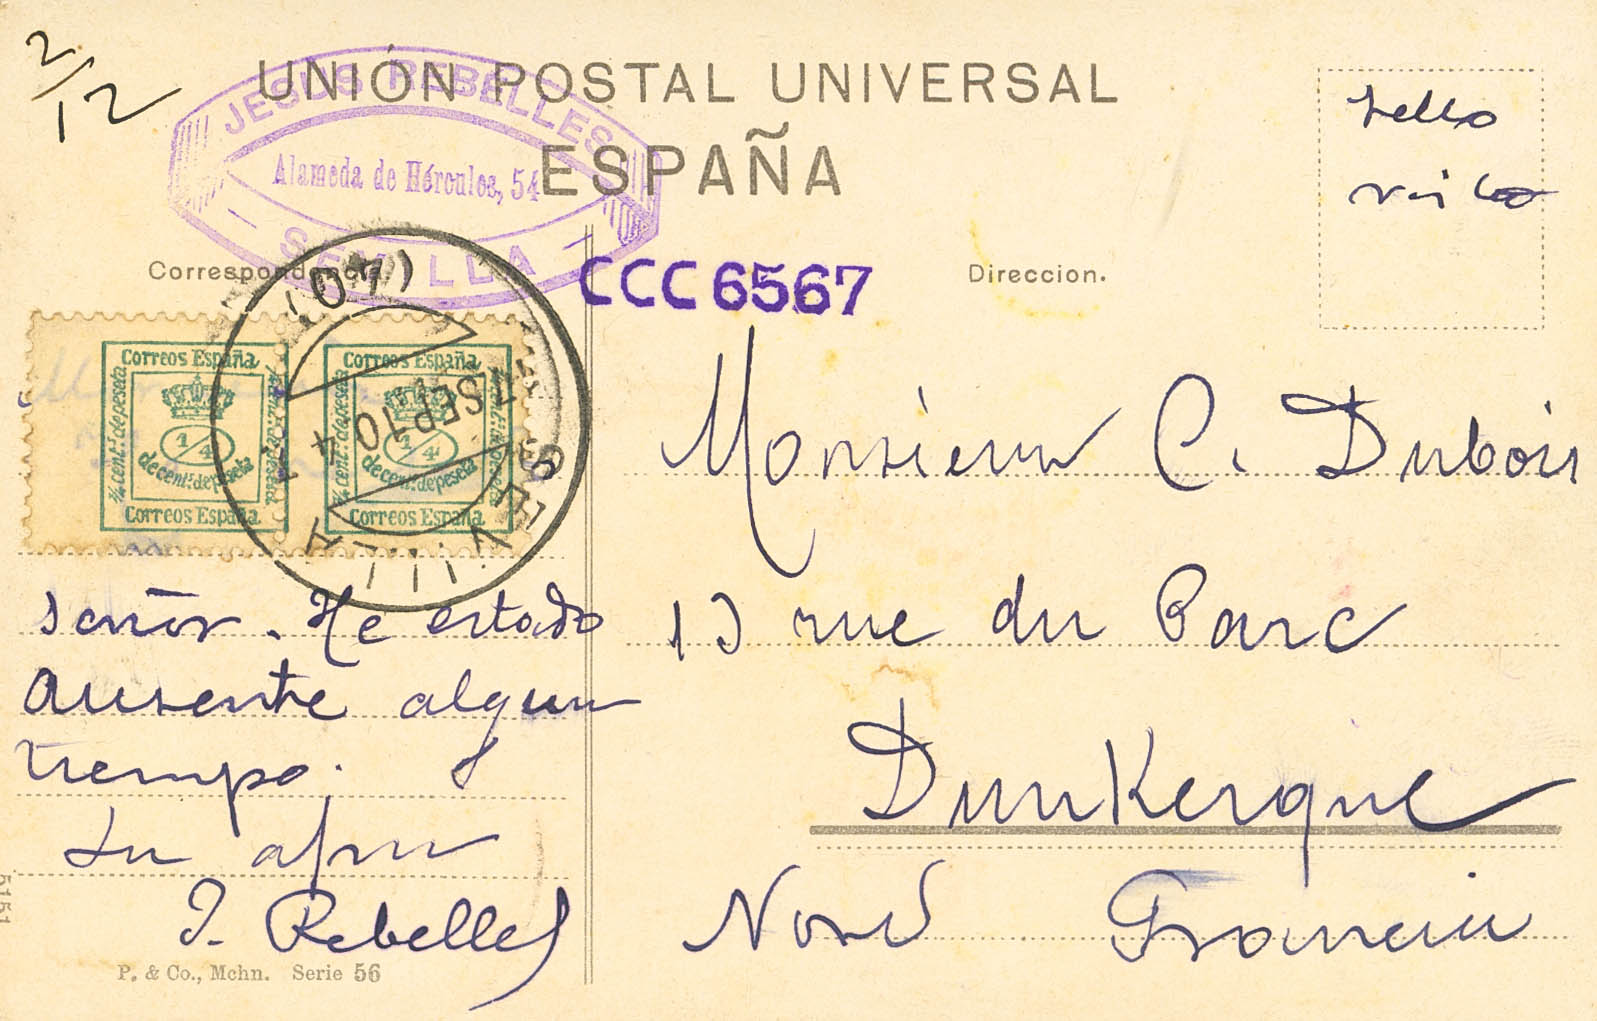 2/12
UNIÓN POSTAL UNIVERSAL
ESPAÑA
JESUS REBELLES
Alameda de Hércules, 54
SEVILLA
sello
Correspondencia
CCC6567
Direccion.
Correos España
¼ cent? de peseta
1/4
de cent? de peseta
Correos España
Correos España
¼ cent? de peseta
1/4
de cent? de peseta
Correos España
SEVILLA
7 SEP 10 4
Monsieur C. Dubois
13 rue du Parc
Dunkerque
Nord Francia
señor. He estado
ausente algun
tiempo.
su afmo
J. Rebelles
P. & Co., Mchn. Serie 56
5151